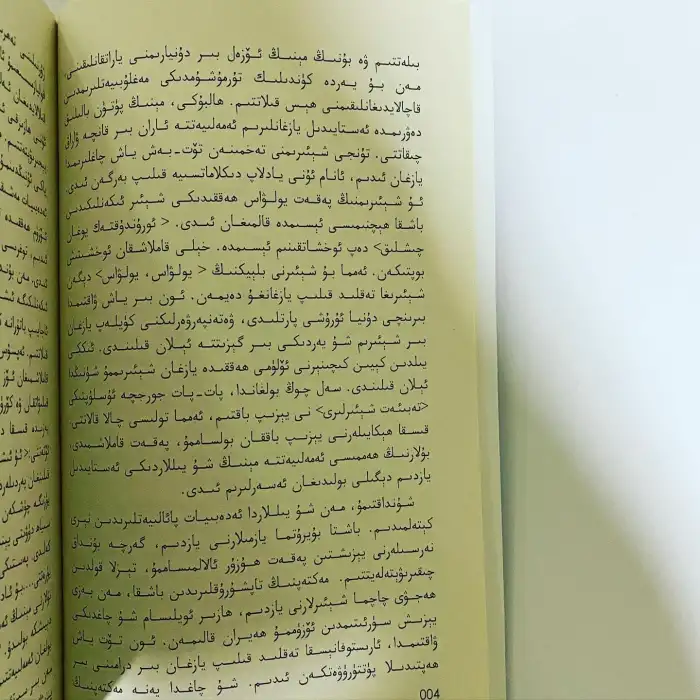 بىلەتتىم ۋە بۇنىڭ مېنىڭ ئۆزەل بىر دۇنيارىمنى ياراتقانلىقىنى،
مەن بۇ يەردە كۈندىلىك تۇرمۇشۇمدىكى مەغلۇبىيەتلىرىمدىن
قاچالايدىغانلىقىمنى ھېس قىلاتتىم. ھالبۇكى، مېنىڭ پۈتۈن بالىلىق
دەۋرىمدە ئەستايىدىل يازغانلىرىم ئەمەلىيەتتە ئاران بىر قانچە ۋاراق
چىقاتتى. تۇنجى شېئىرىمنى تەخمىنەن تۆت-بەش ياش چاغلىرىمدا
يازغان ئىدىم، ئانام ئۇنى يادلاپ دىكلاماتسىيە قىلىپ بەرگەن ئىدى.
ئۇ شېئىرىمنىڭ پەقەت يولۋاس ھەققىدىكى شېئىر ئىكەنلىكىدىن
باشقا ھېچنىمىسى ئېسىمدە قالمىغان ئىدى. < ئورۇندۇقتەك يوغان
چىشلىق> دەپ ئوخشاتقىنىم ئېسىمدە. خېلى قاملاشقان ئوخشىتىش
بوپتىكەن. ئەمما بۇ شېئىرنى بلېيكنىڭ < يولۋاس، يولۋاس> دېگەن
شېئىرىغا تەقلىد قىلىپ يازغانغۇ دەيمەن. ئون بىر ياش ۋاقتىمدا
بىرىنچى دۇنيا ئۇرۇشى پارتلىدى، ۋەتەنپەرۋەرلىكنى كۈيلەپ يازغان
بىر شېئىرىم شۇ يەردىكى بىر گېزىتتە ئېلان قىلىندى. ئىككى
يىلدىن كېيىن كىچىنېرنى ئۆلۈمى ھەققىدە يازغان شېئىرىممۇ شۇنىڭدا
ئېلان قىلىندى. سەل چوڭ بولغاندا، پات-پات جورجچە ئۇسلۇپتىكى
<تەبىئەت شېئىرلىرى> نى يېزىپ باقتىم، ئەمما تولىسى چالا قالاتتى.
قىسقا ھېكايىلەرنى يېزىپ باققان بولساممۇ، پەقەت قاملاشمىدى.
بۇلارنىڭ ھەممىسى ئەمەلىيەتتە مېنىڭ شۇ يىللاردىكى ئەستايىدىل
يازدىم دېگىلى بولىدىغان ئەسەرلىرىم ئىدى.
شۇنداقتىمۇ، مەن شۇ يىللاردا ئەدەبىيات پائالىيەتلىرىدىن نېرى
كېتەلمىدىم. باشتا بۇيرۇتما يازمىلارنى يازدىم، گەرچە بۇنداق
نەرسىلەرنى يېزىشتىن پەقەت ھۇزۇر ئالالمىساممۇ، تېزلا قولدىن
چىقىرىۋېتەلەيتتىم. مەكتەپنىڭ تاپشۇرۇقلىرىدىن باشقا، مەن بەزى
ھەجۋى چاچما شېئىرلارنى يازدىم، ھازىر ئويلىسام شۇ چاغدىكى
يېزىش سۈرئىتىمدىن ئۆزۈممۇ ھەيران قالىمەن. ئون تۆت ياش
ۋاقتىمدا، ئارىستوفانېسقا تەقلىد قىلىپ يازغان بىر درامىنى بىر
ھەپتىدىلا پۈتتۈرۈۋەتكەن ئىدىم. شۇ چاغدا يەنە مەكتەپنىڭ
004